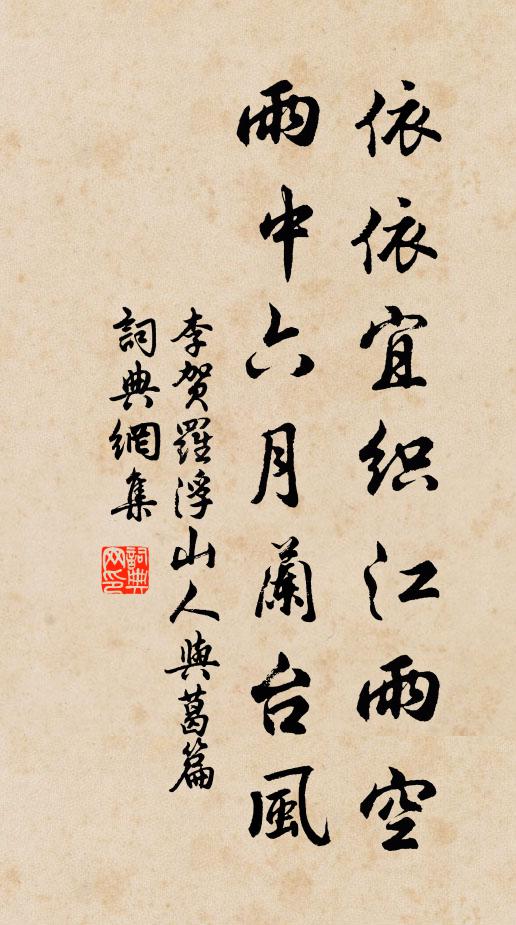 依依宜织江雨空
雨中六月蘭台風
李贺羅浮山人與葛篇
詞典網集
詞典网印